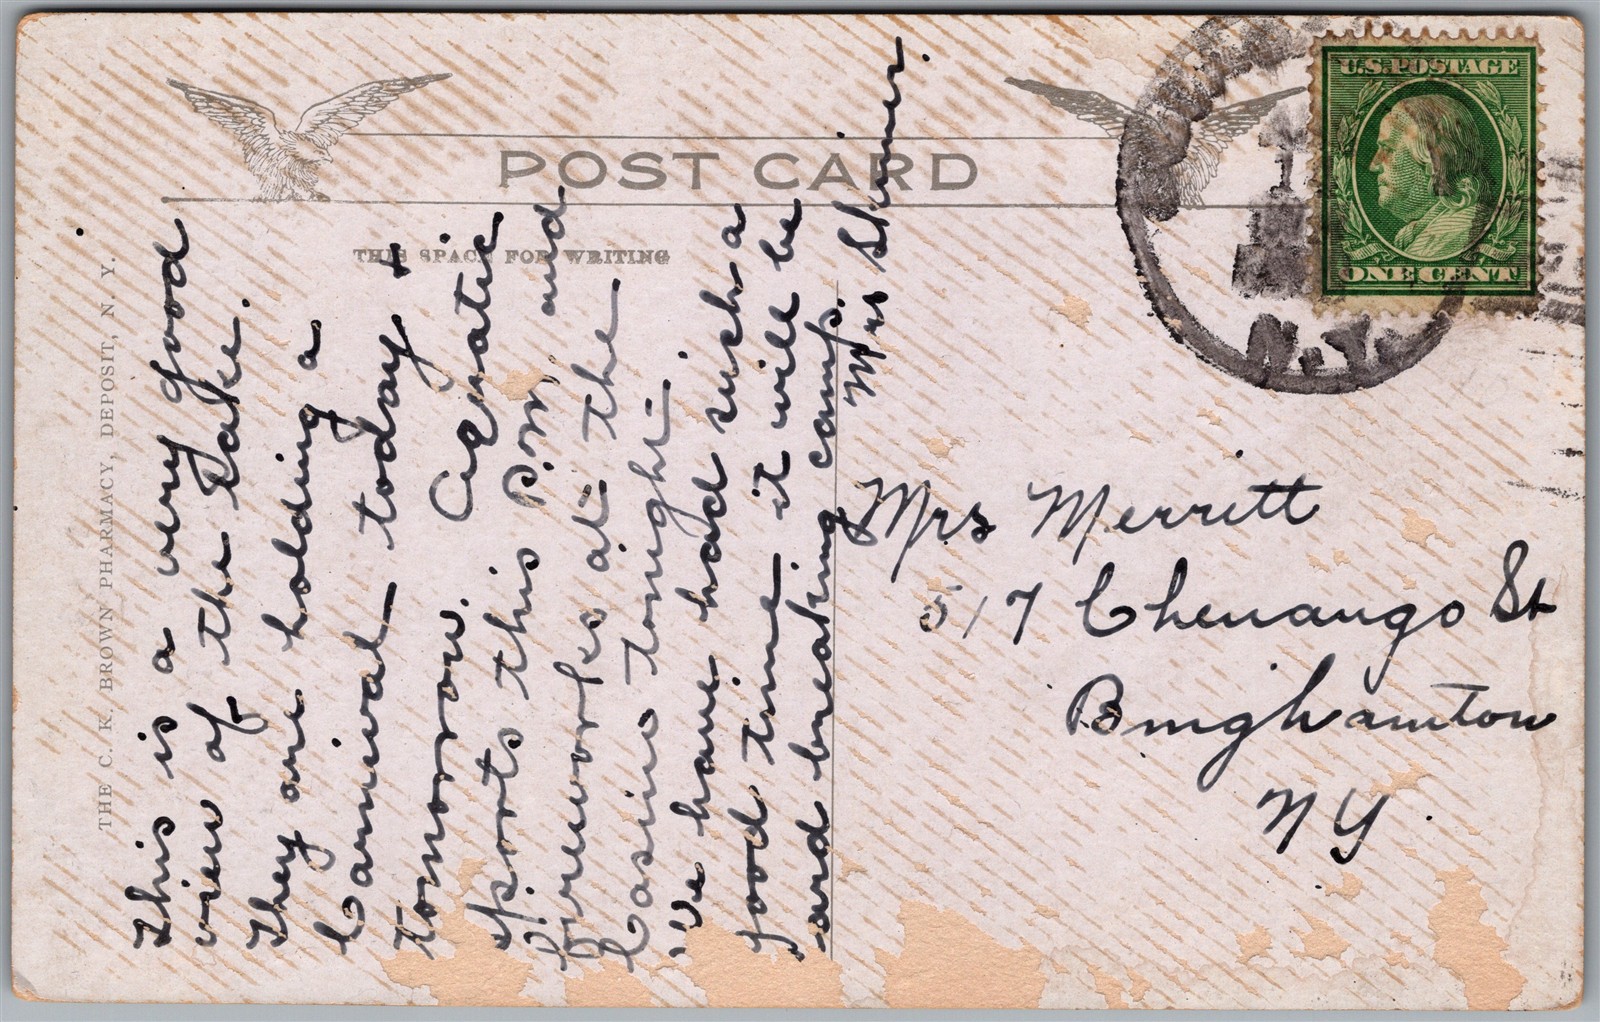 POST CARD
THIS SPACE FOR WRITING
THE C. K. BROWN PHARMACY, DEPOSIT, N. Y.
This is a very good
view of the Lake.
They are holding a
Carnival today +
tomorrow. Aquatic
sports this P.m. and
fireworks at the
Casino tonight.
We have had such a
good time it will be
hard breaking camp.
Mrs Skinner.
U.S. POSTAGE
ONE CENT
N.Y.
Mrs Merritt
517 Chenango St
Binghamton
N Y.